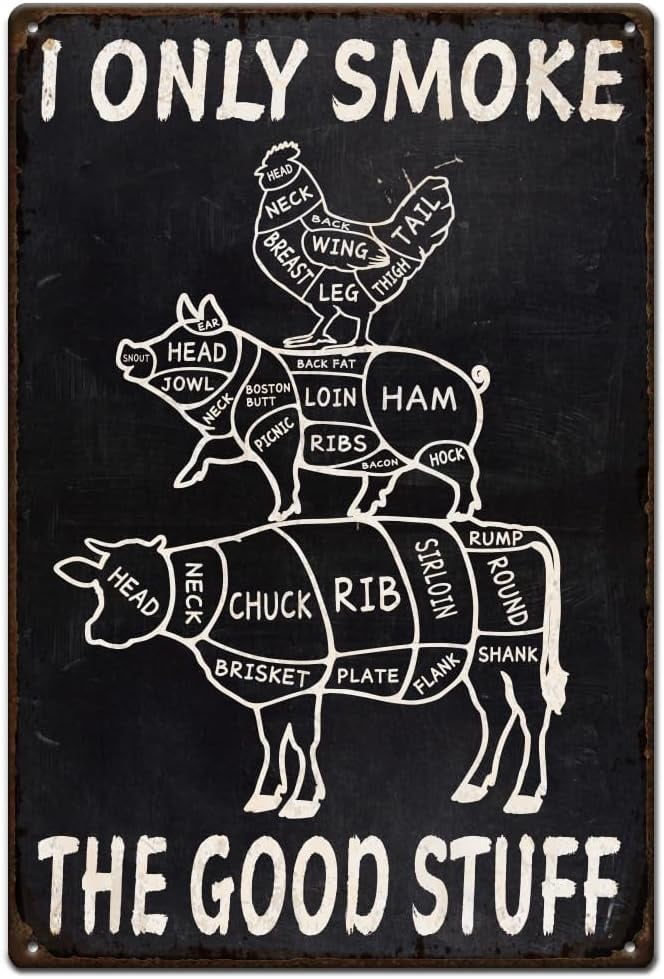 I ONLY SMOKE
HEAD
NECK
BACK
TAIL
WING
BREAST
THIGH
LEG
EAR
SNOUT
HEAD
BACK FAT
JOWL
BOSTON
BUTT
LOIN
HAM
NECK
PICNIC
RIBS
BACON
HOCK
RUMP
HEAD
NECK
CHUCK
RIB
SIRLOIN
ROUND
BRISKET
PLATE
FLANK
SHANK
THE GOOD STUFF